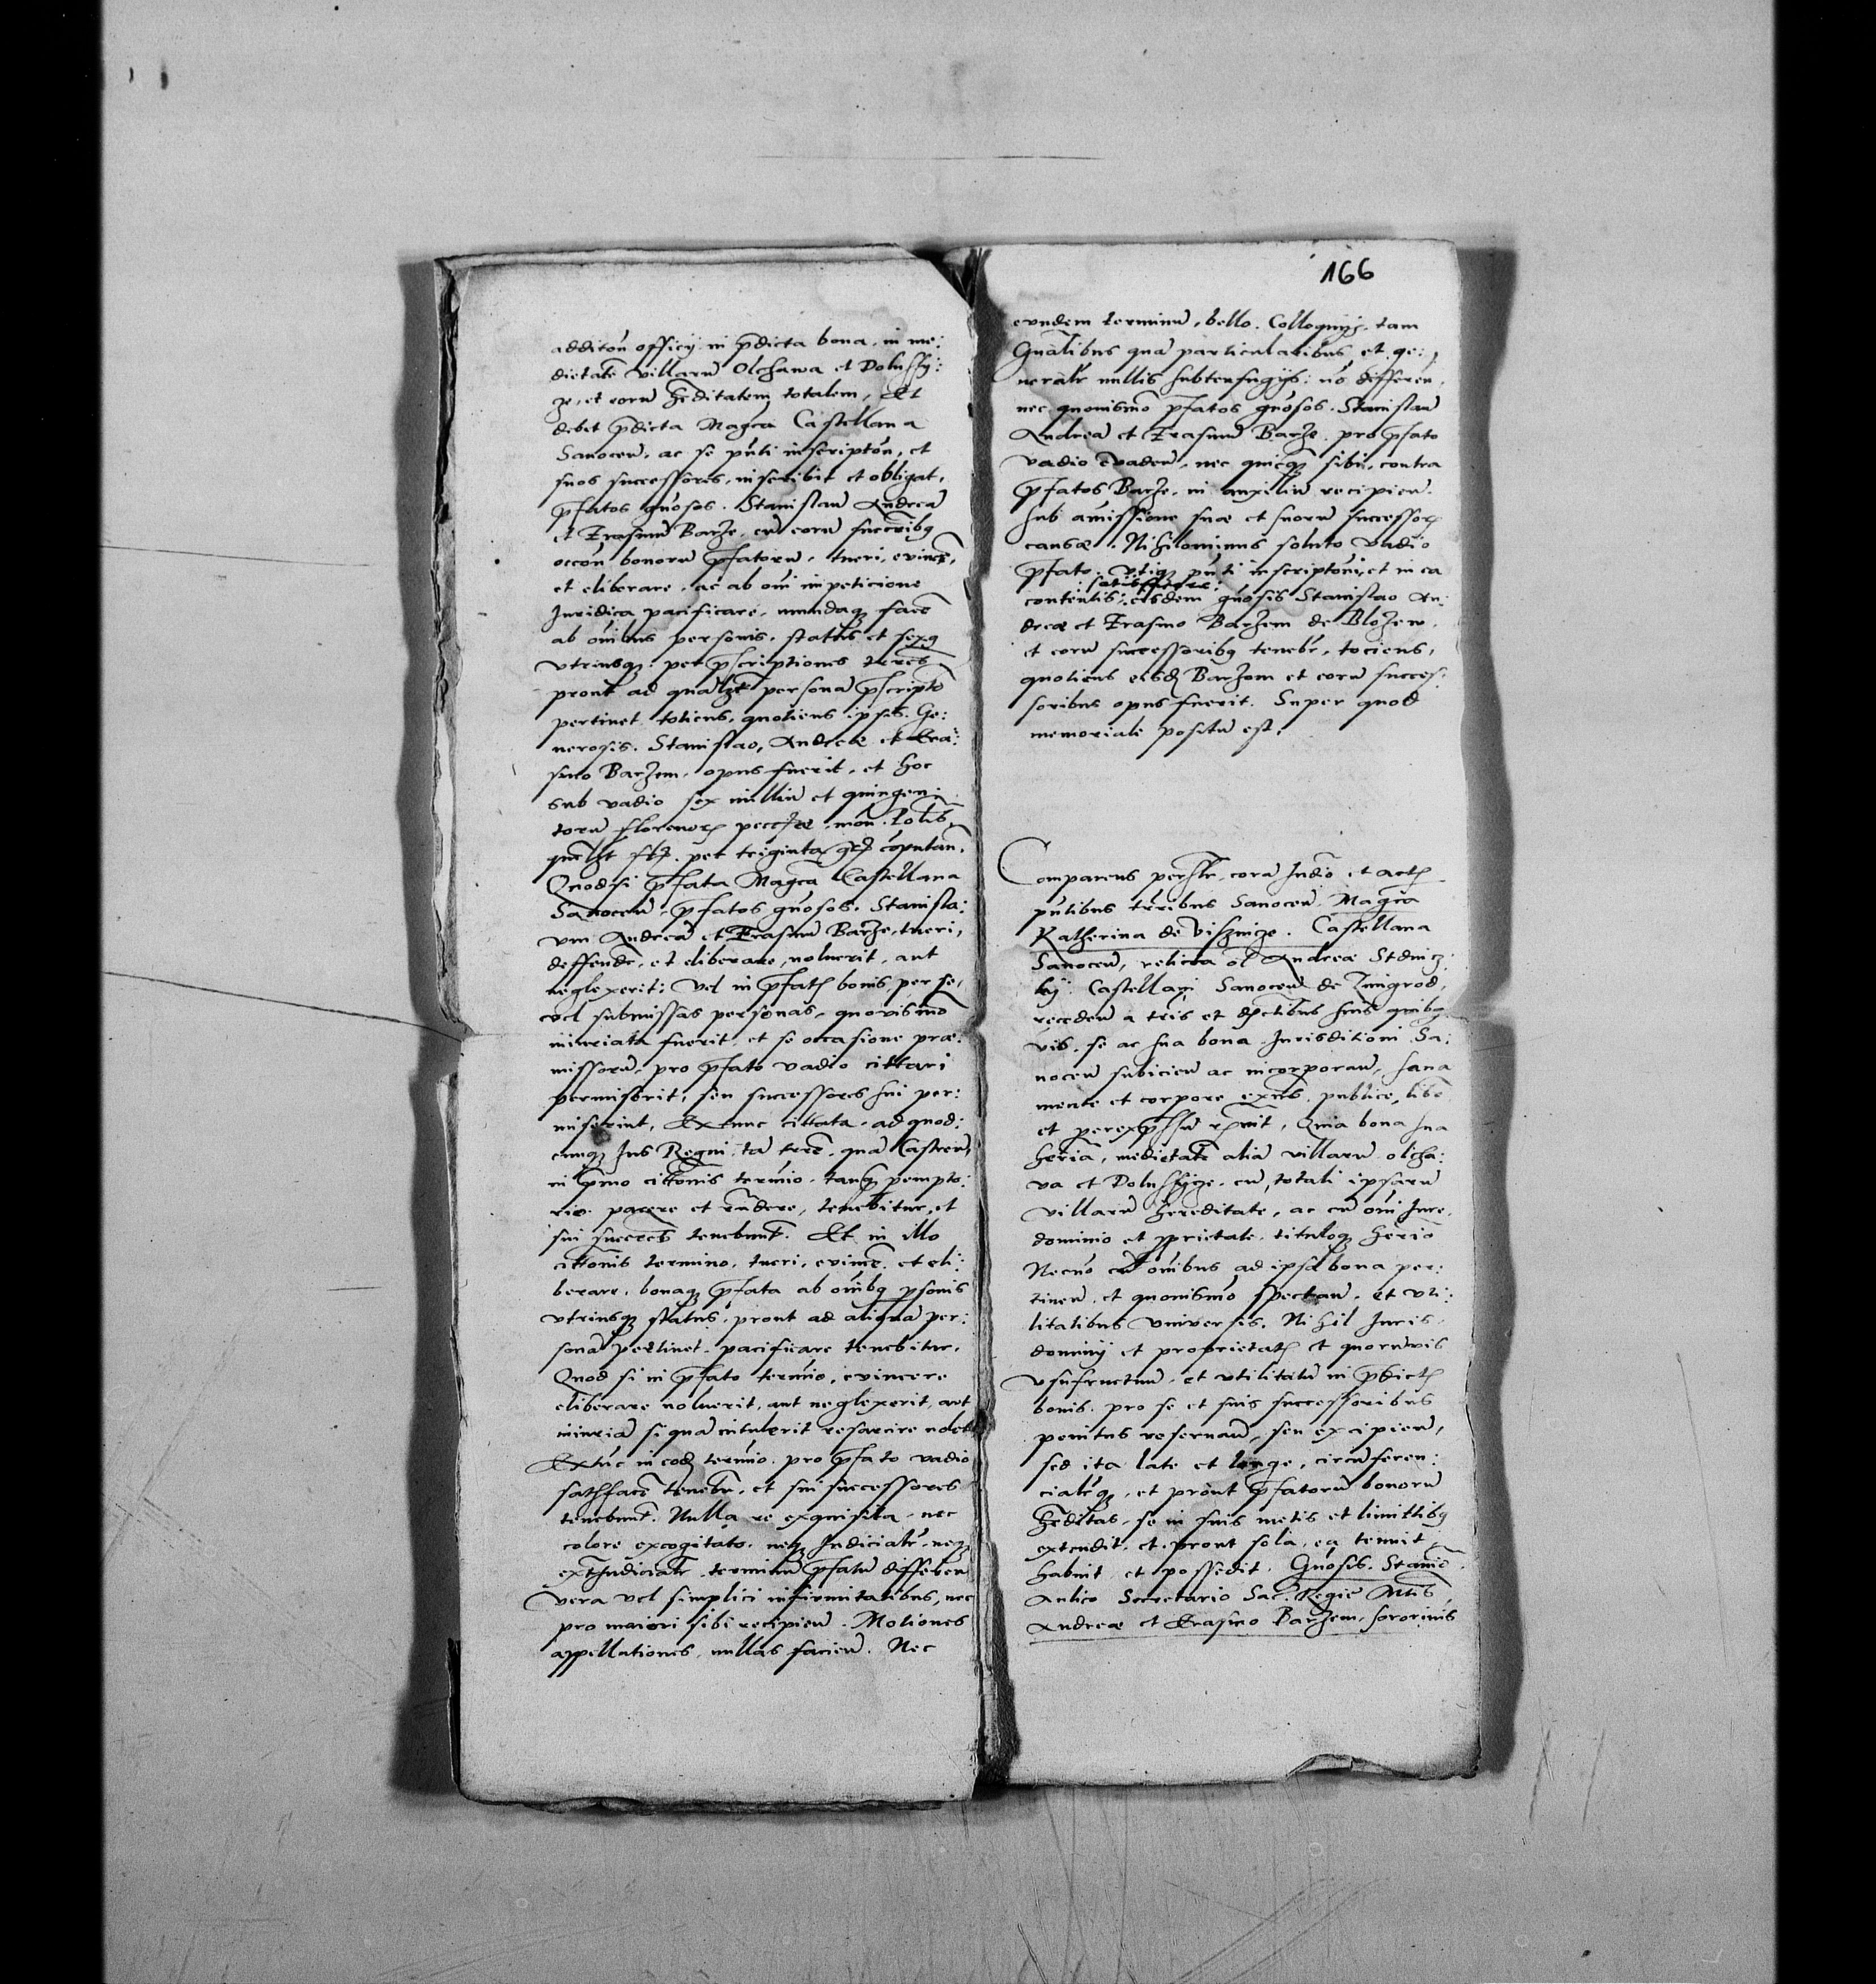 additōn officy in p̄dicta bona, in me:
dietatē villarū Olchawa et Doluschy:
ze, et eorū hēditatem totalem, Et
debet p̄dicta Magca Castellana
Sanoceū, ac se pn̄ti inscriptōn, et
suos successores, inscribit et obligat,
p̄fatos gn̄osos. Stanislaū Andreā
et Erasmū Barze, cū eorū succrībq
occōn bonorū p̄fatorū, tueri, evincē,
et eliberare, ac ab om̄i impeticione
Iuridica pacificare, mundaq facē
ab om̄ibus personis, status et sexq
utriusq: per p̄scriptiones terres
prout ad qualzt personā p̄scriptō
pertinet. totiens, quotiens ipsis. Ge:
nerosis. Stanislao, Andreæ et Era:
smo Barzem, opus fuerit, et hoc
sub vadio sex milliū et quingen:
torū florenorz pecciæ, mōn. Polīs,
qmlzt flz. per triginta grz cōputan.
Quodsi p̄fata Magca Castellana
Sanoceū, p̄fatos gn̄osos. Stanisla:
um Andreā et Erasmū Barze, tueri,
deffendē, et eliberare, noluerit, aut
neglexerit: Vel in p̄fatz bonis, per se,
vel submissas personas, quovismō
iniuriata fuerit, et se occasione præ:
missorū, pro p̄fato vadio cittari
permiserit, seu successores sui per:
miserint, Extunc cittata, ad quod:
cunqz Ius Regni, tā trrē, quā Castreū,
in p̄mo cittōnis termio, tanqz pempto:
rio parere et rn̄dere, tenebitur, et
sui succres tenebunt. Et in illo
cittōnis termino, tueri, evincē, et eli:
berare, bonaqz p̄fata ab om̄ibq psonis
utriusqz status, prout ad aliquā per:
sonā pertinet, pacificare tenebitur.
Quod si in p̄fato termio, evincere
eliberare noluerit, aut neglexerit, aut
iniuriā si quā intulerit resarcire nolet
Extūc in eodz termio, pro p̄fato vadio
satisfacē tenebr, et sui successores
tenebunt. Nulla re exquisita, nec
colore excogitato, neqz Iudicialr, neqz
extraIudicialr, terminū p̄fatū differen
vera vel simplici infirmitatibus, nec
pro maiori sibi recipieū. Motiones
appellationes, nullas facieū. Nec
166
eundem terminū, bello. Colloquijs, tam
Gn̄alibus quā particularibus, et ge:
neralr nullis subterfugijs: nō differeū,
nec quovismō p̄fatos gn̄osos. Stanislaū
Andreā et Erasmū Barze, pro p̄fato
vadio evadeū, nec quicqz sibi, contra
p̄fatos Barze, in auxiliū recipieū.
sub amissione suæ et suorū successorz
causæ. Nihilominus soluto vadio
p̄fato, utiqz pn̄ti inscriptōni, et in ea
satisfacere
contentis: eisdem gn̄osis Stanislao An:
dreæ et Erasmo Barzem de Blozew,
et eorū successoribq tenebr, tociens,
quotiens eisdz Barzem et eorū succes:
soribus opus fuerit. Super quod
memoriale positū est.
Comparens persltr, corā Iudō et actz
pn̄tibus trribus Sanoceū, Magca
Katherina de Visznicze. Castellana
Sanoceū, relicta ol Andreæ Stdnicz:
kij. Castellani Sanoceū de Zmigrod,
recedeū a tris et districtibus suis quibq
vis, se ac sua bona, Iurisditioni Sa:
noceū subicieū ac incorporaū, sana
mente et corpore exn̄s, publice, libe
et per exp̄ssū rgnit, Quia bona sua
heria, medietatē aliā villarū olcha:
va et Doluschyze, cū totali ipsarū
villarū hereditate, ac cū om̄i Iure,
dominio et pprietate, tituloqz heriō
Necnō cū om̄ibus ad ipsa bona per:
tineū, et quovismō spectaū, et uti:
litatibus universis. Nihil Iuris,
dominij et proprietatz et quorūvis
usufructuū, et utilitatū in p̄dictz
bonis, pro se et suis successoribus
penitus reservaū, seu excipieū,
sed ita late et longe, circūferen:
cialrqz, et prout p̄fatorū bonorū
hēditas, se in suis metis et limittibq
extendit, et prout sola, ea tenuit
habuit et possedit. Gn̄osis. Stanis̄
Aulico Secretario Sac. Regiē Mtīs,
Andreæ et Erasmo Barzem, sororinis